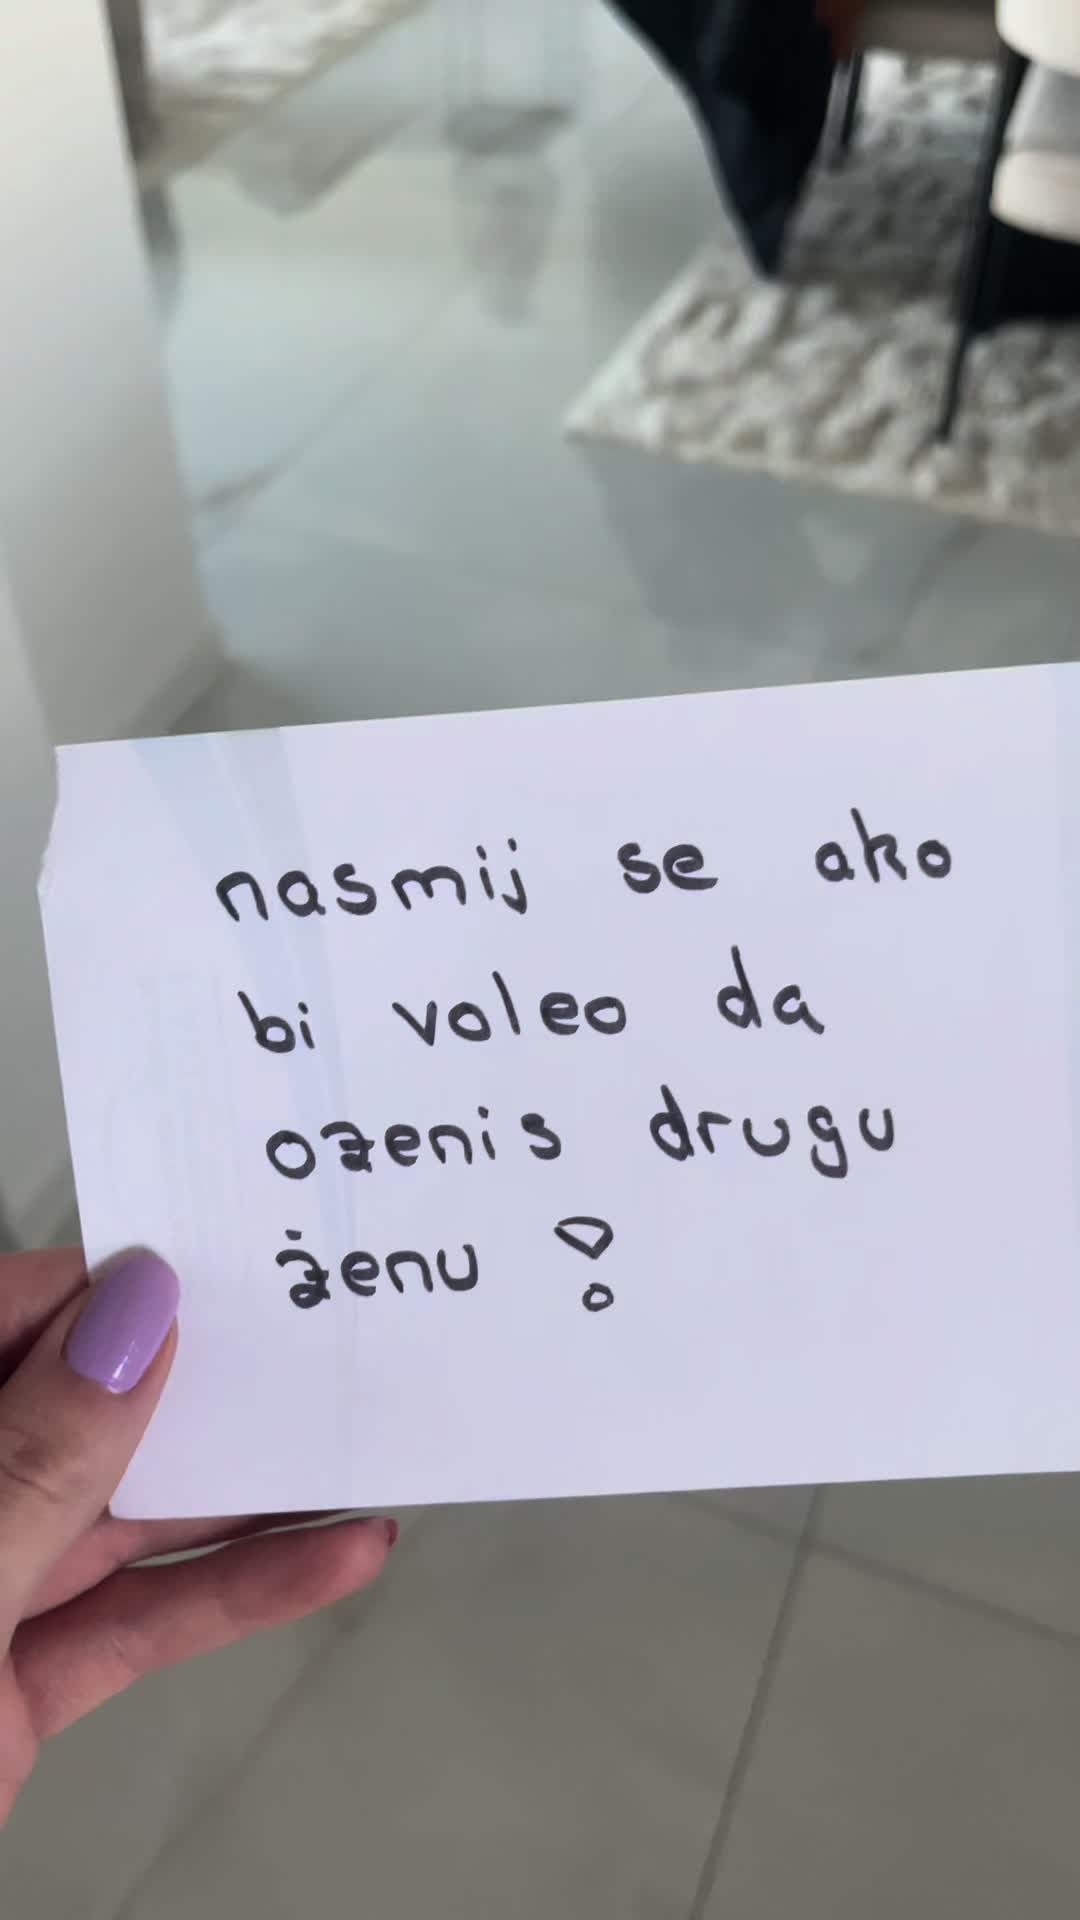 nasmij se ako
bi voleo da
ozenis drugu
ženu !